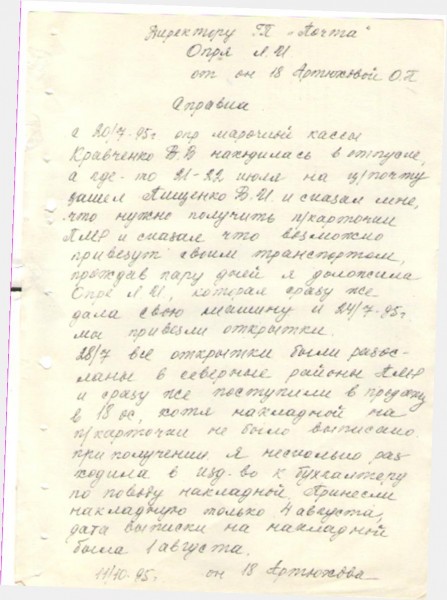 Директору ГП "Почта"
Опря Л.И
от он 18 Артюховой О.П
Справка.
с 20/7-95г опр марочной кассы
Кравченко В.В находилась в отпуске,
а где-то 21-22 июля на ц/почту
зашел Пищенко В.И. и сказал мне,
что нужно получить п/карточки
ПМР и сказал что возможно
привезут своим транспортом,
прождав пару дней я доложила
Опре Л.И, которая сразу же
дала свою машину и 24/7-95г
мы привезли открытки.
28/7 все открытки были разос-
ланы в северные районы ПМР
и сразу же поступили в продажу
в 18 ос, хотя накладной на
п/карточки не было выписано
при получении. Я несколько раз
ходила в изд-во к бухгалтеру
по поводу накладной. Принесли
накладную только 4 августа,
дата выписки на накладной
была 1 августа.
11/10-95г. он 18 Артюхова